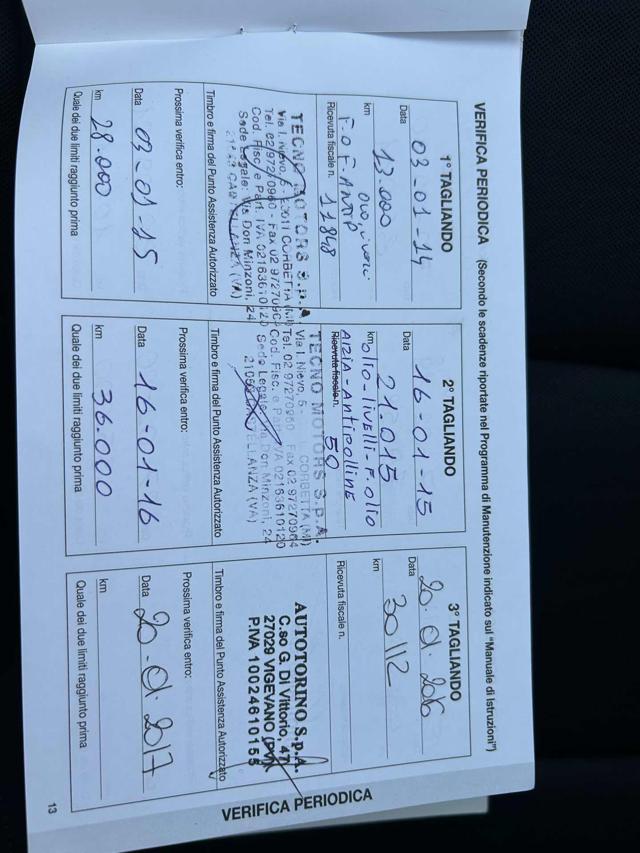 VERIFICA PERIODICA (Secondo le scadenze riportate nel Programma di Manutenzione indicato sul "Manuale di Istruzioni")
1° TAGLIANDO
Data 03-01-14
km 13.000
OLIO LIVELLI
F.O F.ANTIP
Ricevuta fiscale n. 11848
TECNO MOTORS S.p.A.
Via I. Nievo, 5 - 20011 CORBETTA (MI)
Tel. 02/97270960 - Fax 02 972709
Cod. Fisc. e Part. IVA 02163610120
Sede Legale: Via Don Minzoni, 24
Timbro e firma del Punto Assistenza Autorizzato
Prossima verifica entro:
Data 03-01-15
km 28.000
Quale dei due limiti raggiunto prima
2° TAGLIANDO
Data 16-01-15
km 21.015
OLIO-LIVELLI-F.OLIO
ARIA-ANTIPOLLINE
Ricevuta fiscale n. 50
TECNO MOTORS S.p.A.
Via I. Nievo, 5 - CORBETTA (MI)
Tel. 02 97270960 Fax 02 97270964
Cod. Fisc. e P. IVA 02163610120
Sede Legale: Via Don Minzoni, 24
CASTELLANZA (VA)
Timbro e firma del Punto Assistenza Autorizzato
Prossima verifica entro:
Data 16-01-16
km 36.000
Quale dei due limiti raggiunto prima
3° TAGLIANDO
Data 20.01.2016
km 30112
Ricevuta fiscale n.
AUTOTORINO S.p.A.
C.so G. DI Vittorio, 47
27029 VIGEVANO (PV)
P.IVA 10024610155
Timbro e firma del Punto Assistenza Autorizzato
Prossima verifica entro:
Data 20.01.2017
km
Quale dei due limiti raggiunto prima
VERIFICA PERIODICA
13